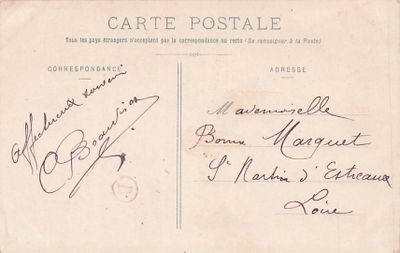 CARTE POSTALE
Tous les pays étrangers n'acceptent pas la correspondance au recto (Se renseigner à la Poste)
CORRESPONDANCE
ADRESSE
Affectueux souvenir
Mademoiselle
Marguet
St Martin d'Estreaux
Loire